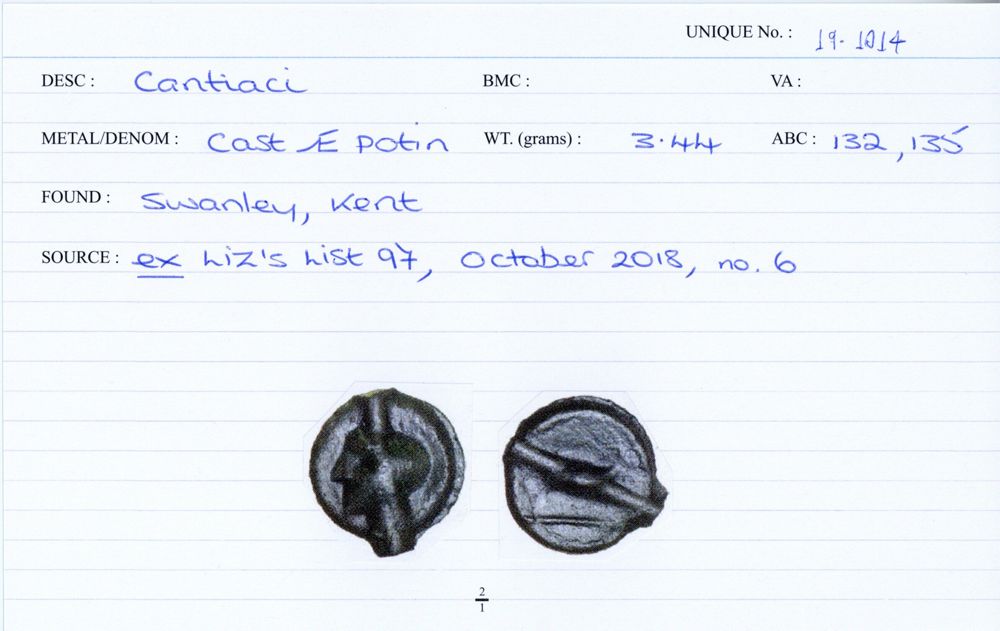 UNIQUE No. : 19-1014
DESC : Cantiaci BMC : VA :
METAL/DENOM : Cast Æ potin WT. (grams) : 3.44 ABC : 132, 135
FOUND : Swanley, Kent
SOURCE : ex Liz's List 97, October 2018, no. 6
2
1